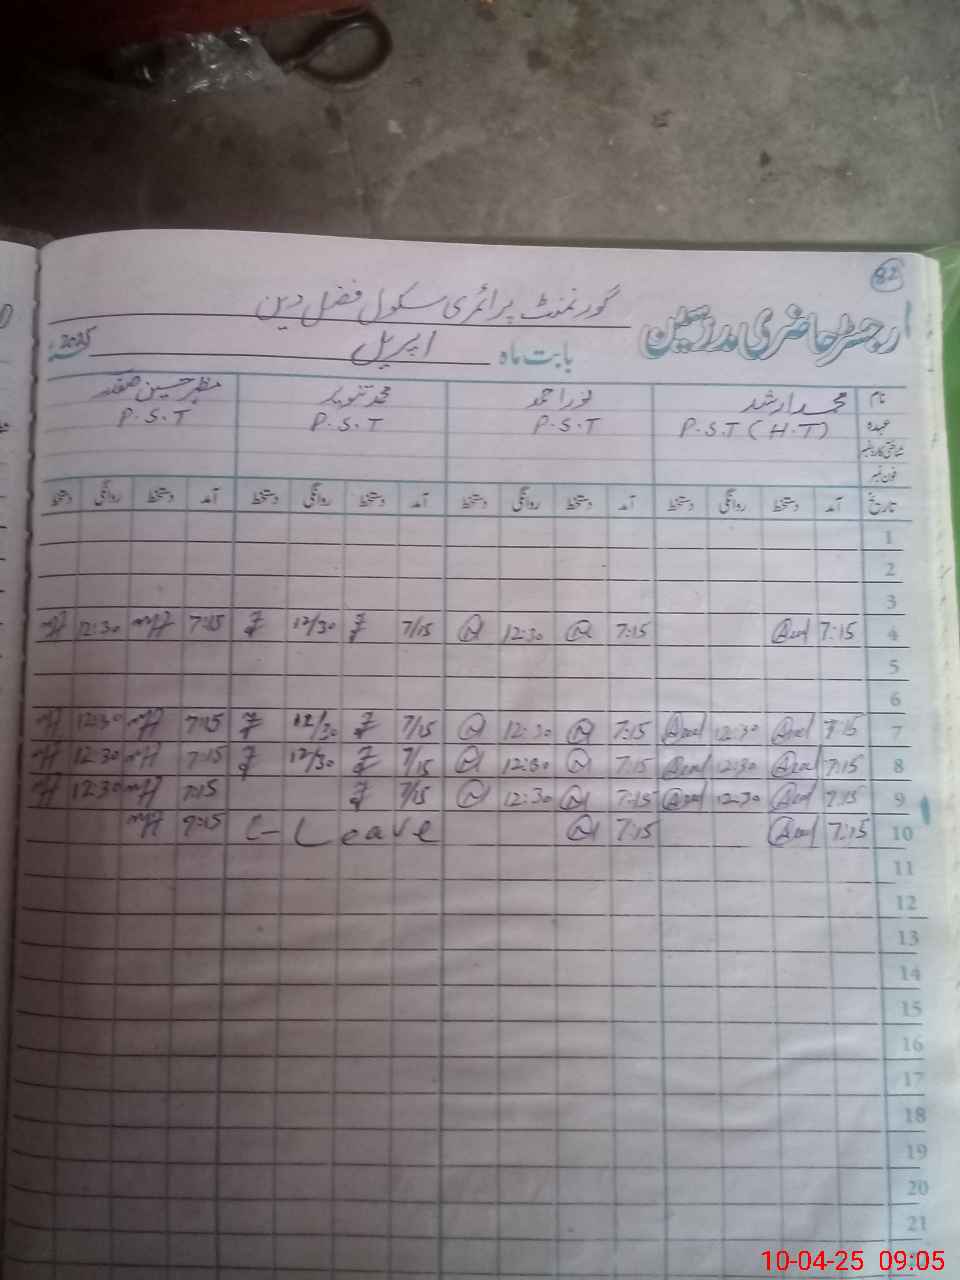 82
رجسٹر حاضری مدرسین گورنمنٹ پرائمری سکول فضل دین
بابت ماہ اپریل 2025
نام محمد ارشد نور احمد محمد تنویر مظہر حسین صفدر
عہدہ P.S.T (H.T) P.S.T P.S.T P.S.T
شناختی کارڈ نمبر
فون نمبر
تاریخ آمد دستخط روانگی دستخط آمد دستخط روانگی دستخط آمد دستخط روانگی دستخط آمد دستخط روانگی دستخط
1
2
3
4 7:15 7:15 12:30 7/15 12/30 7:15 12:30
5
6
7 7:15 12:30 7:15 12:30 7/15 12/30 7:15 12:30
8 7:15 12:30 7:15 12:30 7/15 12/30 7:15 12:30
9 7:15 12:30 7:15 12:30 7/15 7:15 12:30
10 7:15 7:15 C-Leave 7:15
11
12
13
14
15
16
17
18
19
20
21
10-04-25 09:05